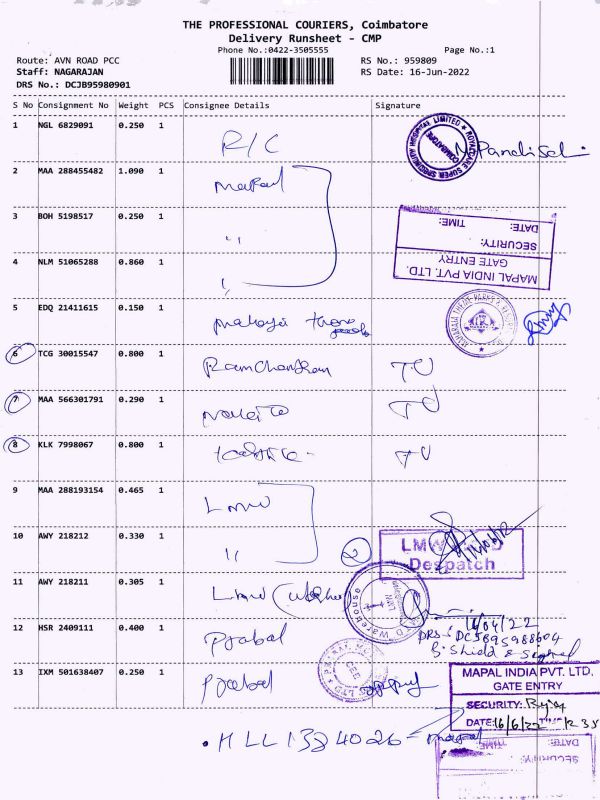 THE PROFESSIONAL COURIERS, Coimbatore
Delivery Runsheet - CMP
Phone No.:0422-3505555 Page No.:1
Route: AVN ROAD PCC RS No.: 959809
Staff: NAGARAJAN RS Date: 16-Jun-2022
DRS No.: DCJB95980901
S No Consignment No Weight PCS Consignee Details Signature
1 NGL 6829091 0.250 1 R/C
ROYALCARE SUPER SPECIALITY HOSPITAL LIMITED
COIMBATORE
2 MAA 288455482 1.090 1 Mapal
3 BOH 5198517 0.250 1 "
DATE: TIME:
SECURITY:
4 NLM 51065288 0.860 1 "
GATE ENTRY
MAPAL INDIA PVT. LTD.
5 EDQ 21411615 0.150 1
MAHARAJA THEME PARKS &
6 TCG 30015547 0.800 1 Ramchandran TU
7 MAA 566301791 0.290 1 TU
8 KLK 7998067 0.800 1 TU
9 MAA 288193154 0.465 1 LMW
10 AWY 218212 0.330 1 " 2
LMW
Despatch
11 AWY 218211 0.305 1 LMW
Warehouse
16/04/22
DRS-
12 HSR 2409111 0.400 1 Prabal
& Signed
13 IXM 501638407 0.250 1 Prabal
MAPAL INDIA PVT. LTD.
GATE ENTRY
SECURITY:
DATE: 16/6/22
. HLL1334026 - mapal
DATE: TIME:
SECURITY: